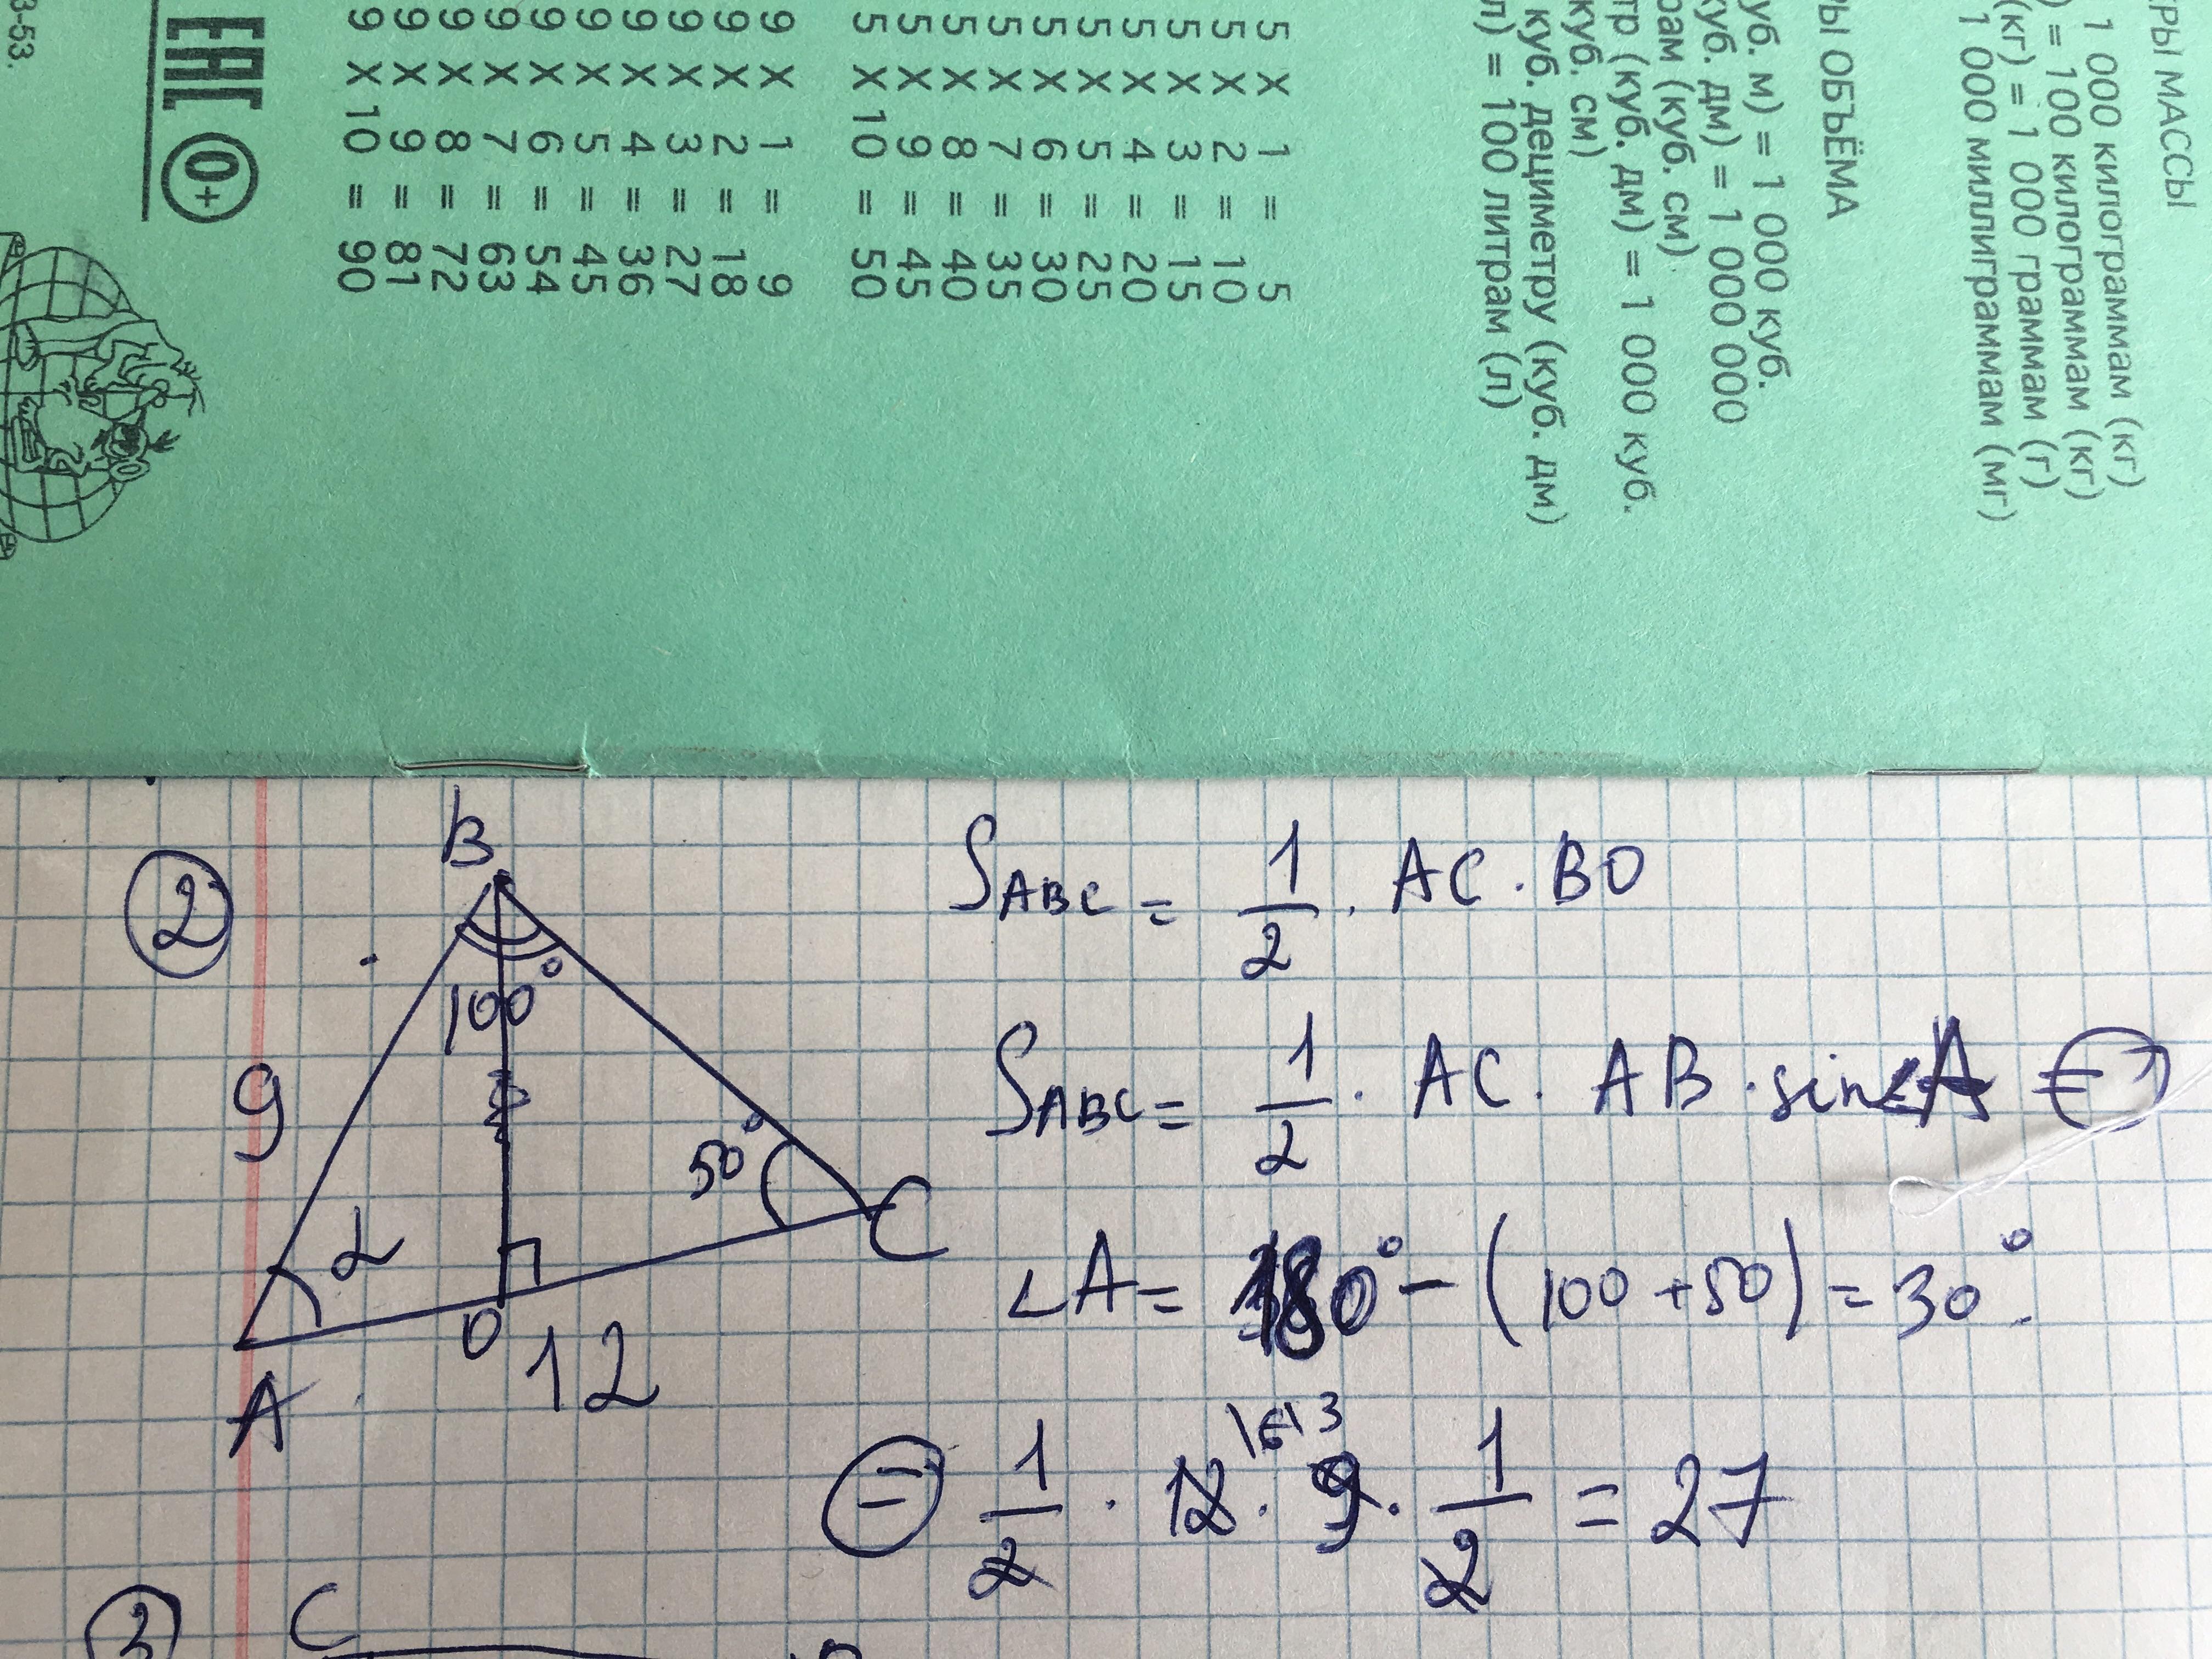 ЕРЫ МАССЫ
1 000 килограммам (кг)
) = 100 килограммам (кг)
(кг) = 1 000 граммам (г)
1 000 миллиграммам (мг)
РЫ ОБЪЁМА
уб. м) = 1 000 куб.
куб. дм) = 1 000 000
рам (куб. см)
тр (куб. дм) = 1 000 куб.
куб. см)
куб. дециметру (куб. дм)
л) = 100 литрам (л)
5 X 1 = 5
5 X 2 = 10
5 X 3 = 15
5 X 4 = 20
5 X 5 = 25
5 X 6 = 30
5 X 7 = 35
5 X 8 = 40
5 X 9 = 45
5 X 10 = 50
9 X 1 = 9
9 X 2 = 18
9 X 3 = 27
9 X 4 = 36
9 X 5 = 45
9 X 6 = 54
9 X 7 = 63
9 X 8 = 72
9 X 9 = 81
9 X 10 = 90
EAC 0+
3-53.
2
B
100°
9
50°
α
A
O
12
C
S ABC = 1/2 · AC · BO
S ABC = 1/2 · AC · AB · sin∠A =
∠A = 180° - (100 + 50) = 30°.
= 1/2 · 12 · 9 · 1/2 = 27
3
C